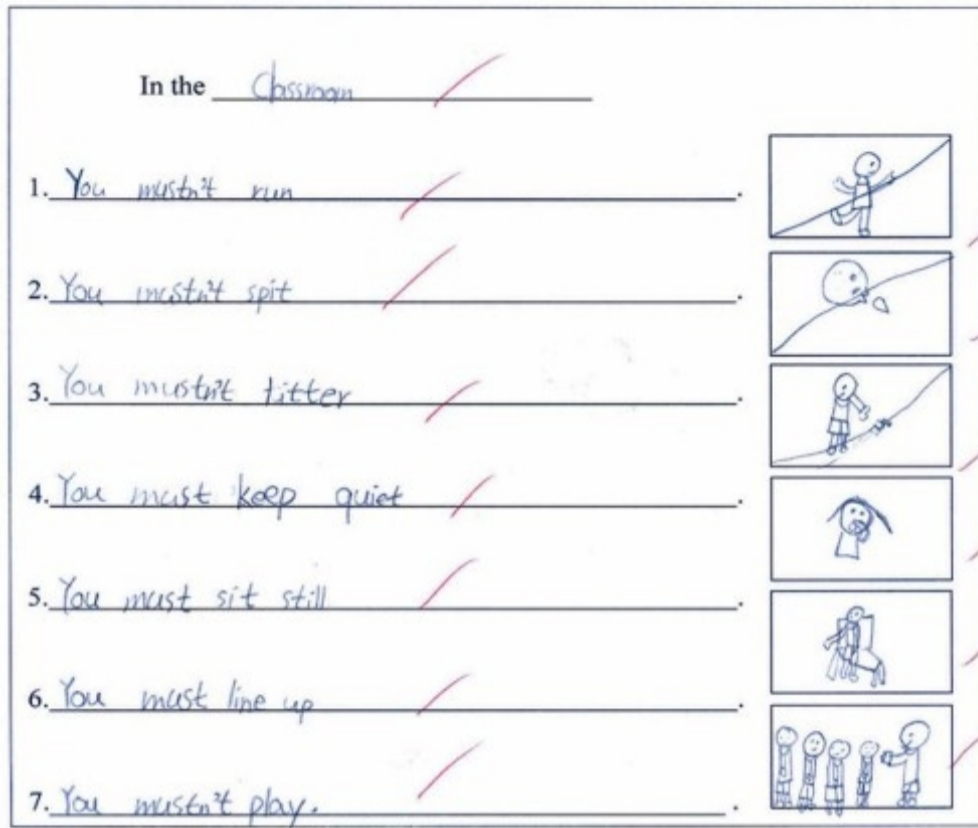 In the Classroom
1. You mustn't run.
2. You mustn't spit.
3. You mustn't titter.
4. You must keep quiet.
5. You must sit still.
6. You must line up.
7. You mustn't play. .